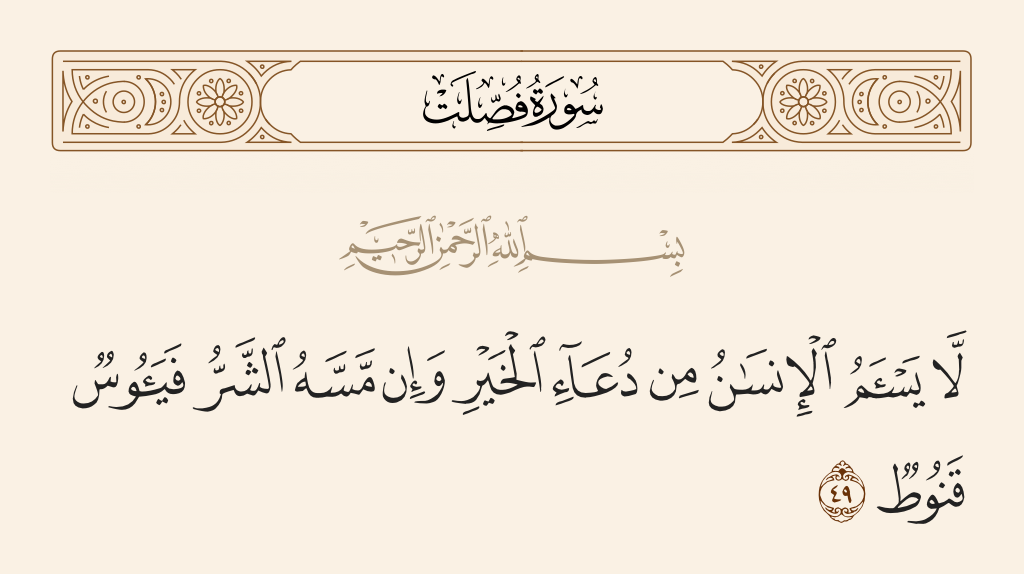 سُورَةُ فُصِّلَتْ
بِسْمِ ٱللَّهِ ٱلرَّحْمَٰنِ ٱلرَّحِيمِ
لَّا يَسْـَٔمُ ٱلْإِنسَـٰنُ مِن دُعَآءِ ٱلْخَيْرِ وَإِن مَّسَّهُ ٱلشَّرُّ فَيَـُٔوسٌ
قَنُوطٌ ٤٩